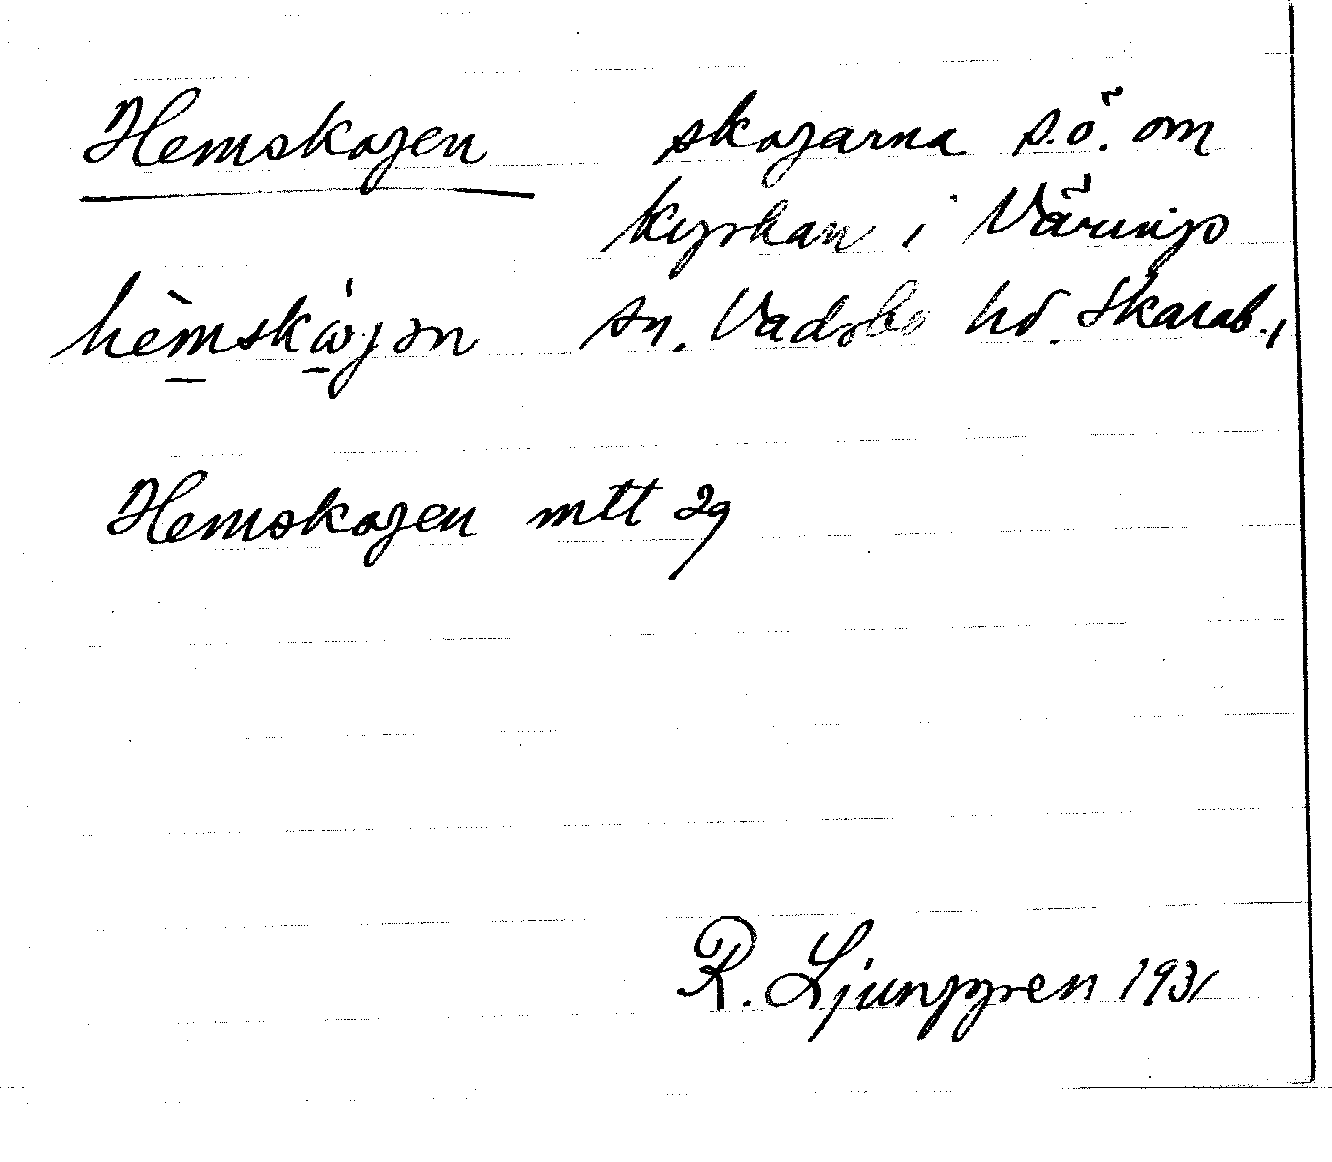 Hemskogen skogarna s.ö. om
kyrkan i Värings
sn. Vadsbo hd. Skarab.,
Hemskogen mtt 29
R. Ljunggren 1931